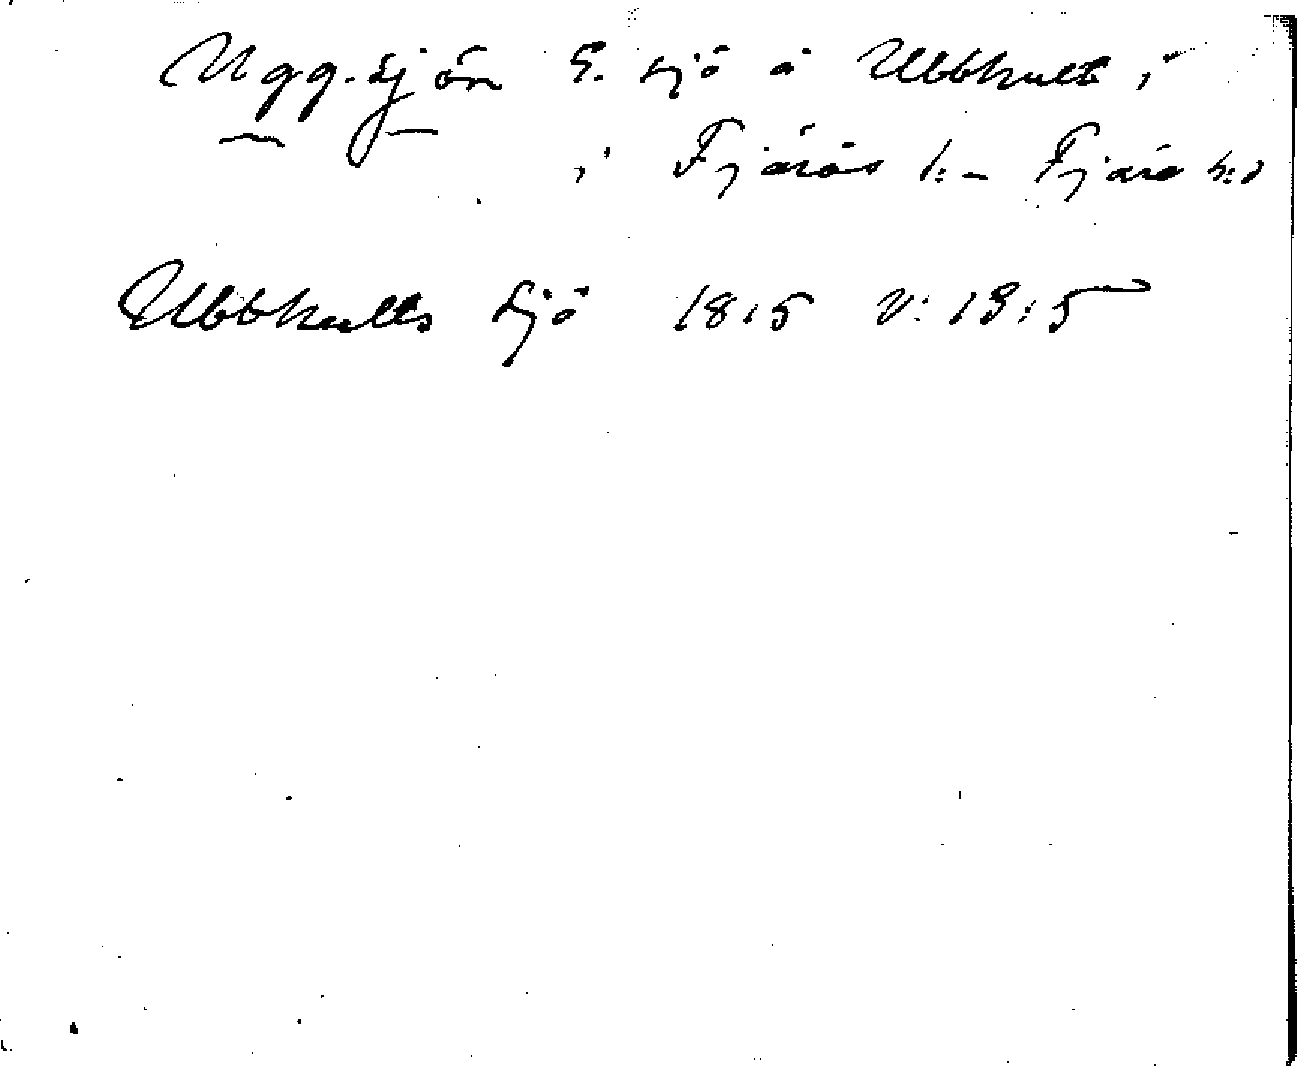 Ugg-sjön S. sjö å Ubbhult i
i Fjärås s:n Fjäre h:d
Ubbhults sjö 1815 v: 13:5